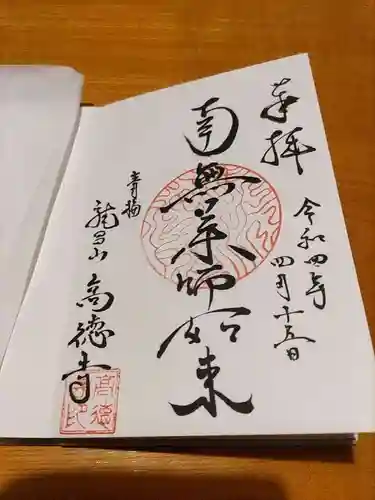 奉拝
令和四年
四月十五日
南無薬師如来
青梅
龍昌山
高徳寺
高徳
寺印